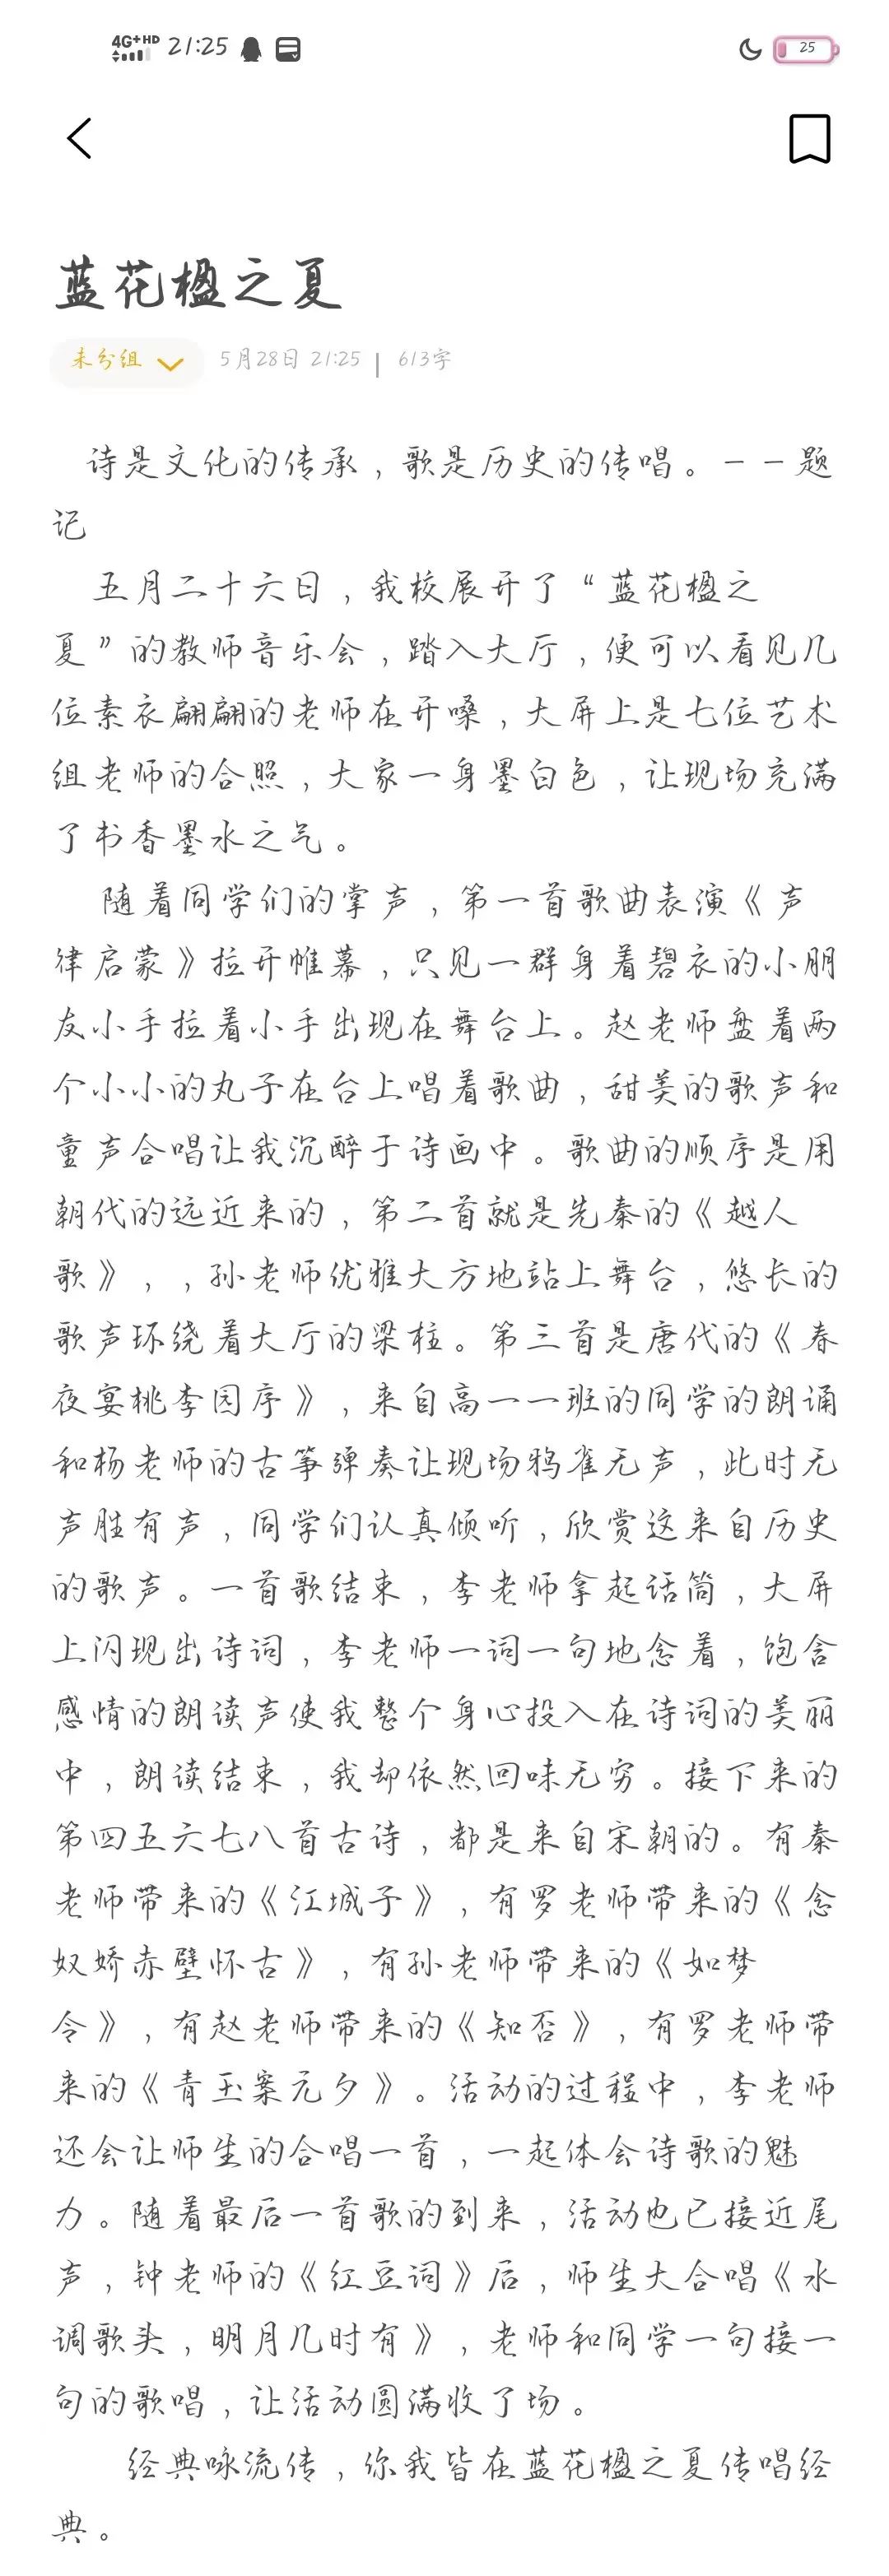 4G+HD 21:25
25
蓝花楹之夏
未分组 5月28日 21:25 | 613字
诗是文化的传承，歌是历史的传唱。－－题
记
五月二十六日，我校展开了“蓝花楹之
夏”的教师音乐会，踏入大厅，便可以看见几
位素衣翩翩的老师在开嗓，大屏上是七位艺术
组老师的合照，大家一身墨白色，让现场充满
了书香墨水之气。
随着同学们的掌声，第一首歌曲表演《声
律启蒙》拉开帷幕，只见一群身着碧衣的小朋
友小手拉着小手出现在舞台上。赵老师盘着两
个小小的丸子在台上唱着歌曲，甜美的歌声和
童声合唱让我沉醉于诗画中。歌曲的顺序是用
朝代的远近来的，第二首就是先秦的《越人
歌》，，孙老师优雅大方地站上舞台，悠长的
歌声环绕着大厅的梁柱。第三首是唐代的《春
夜宴桃李园序》，来自高一一班的同学的朗诵
和杨老师的古筝弹奏让现场鸦雀无声，此时无
声胜有声，同学们认真倾听，欣赏这来自历史
的歌声。一首歌结束，李老师拿起话筒，大屏
上闪现出诗词，李老师一词一句地念着，饱含
感情的朗读声使我整个身心投入在诗词的美丽
中，朗读结束，我却依然回味无穷。接下来的
第四五六七八首古诗，都是来自宋朝的。有秦
老师带来的《江城子》，有罗老师带来的《念
奴娇赤壁怀古》，有孙老师带来的《如梦
令》，有赵老师带来的《知否》，有罗老师带
来的《青玉案元夕》。活动的过程中，李老师
还会让师生的合唱一首，一起体会诗歌的魅
力。随着最后一首歌的到来，活动也已接近尾
声，钟老师的《红豆词》后，师生大合唱《水
调歌头，明月几时有》，老师和同学一句接一
句的歌唱，让活动圆满收了场。
经典咏流传，你我皆在蓝花楹之夏传唱经
典。